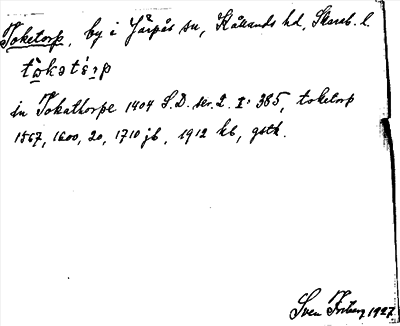 Toketorp, by i Järpås sn, Kållands hd, Skarab. l.
tòkətɛ́rp
in Tokathorpe 1404 S.D. ser. 2. I: 385, toketorp
1567, 1600, 20, 1710 jb, 1912 kb, gstk.
Sven Friberg 1927